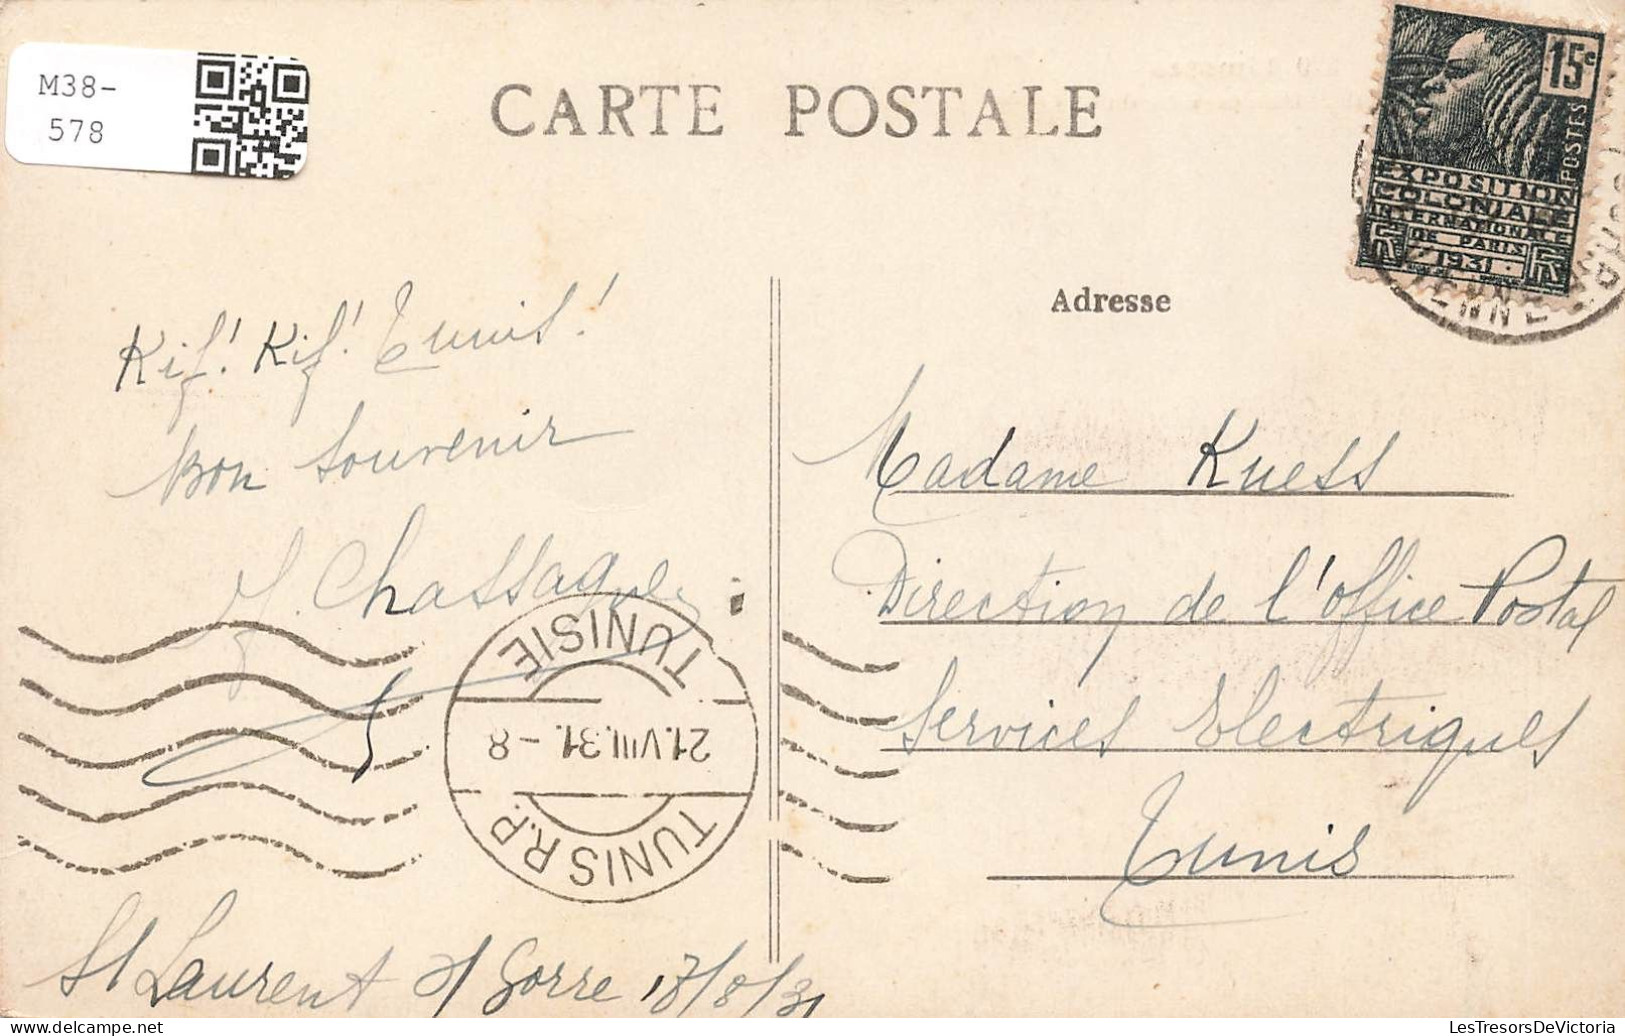 M38-
578
CARTE POSTALE
15c
POSTES
EXPOSITION
COLONIALE
INTERNATIONALE
DE PARIS
1931
Kif! Kif! Tunis!
Bon Souvenir
Chassaque
Adresse
Madame Kuess
Direction de l'office Postal
Services Electriques
Tunis
TUNIS R.P.
21.VIII.31.-8
TUNISIE
St Laurent s/ Gorre 17/8/31
delcampe.net
LesTresorsDeVictoria